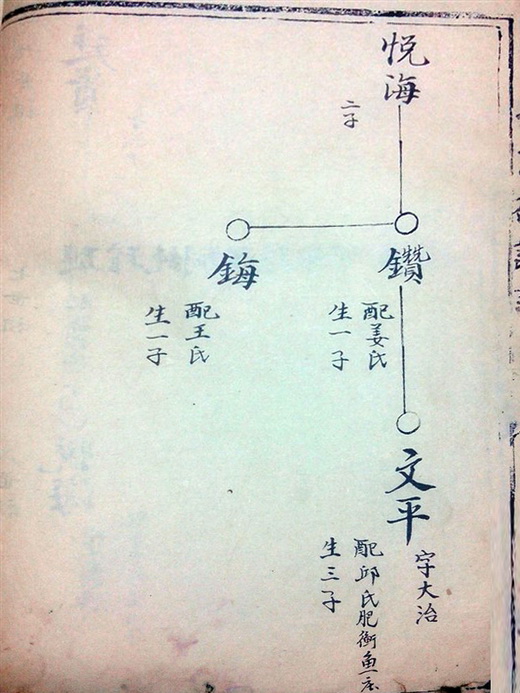 悦海
二子
鑽
配姜氏
生一子
鋂
配王氏
生一子
文平
字大治
配邱氏肥衡鱼庄
生三子